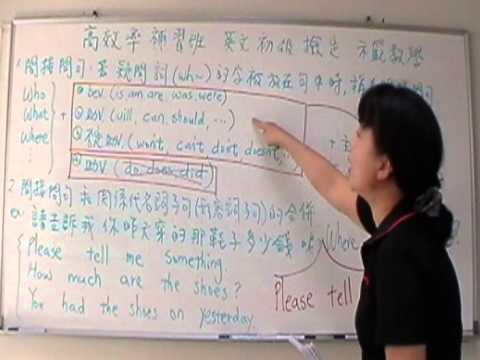 高效率補習班 英文初級檢定 示範教學
1. 間接問句:若疑問詞(wh~)的合被放在句中時,
Who
What
Where
⋮
+
① beV (is, am, are, was, were)
② 助V (will, can, should, ...)
③ 否定助V (won't, can't, don't, doesn't, ...
④ 助V (do, does, did)
+ 主
2. 間接問句和關係代名詞子句(形容詞子句)的合併
ex: 請告訴我你昨天穿的那鞋子多少錢
Please tell me something.
How much are the shoes?
You had the shoes on yesterday.
(Where
Please tell